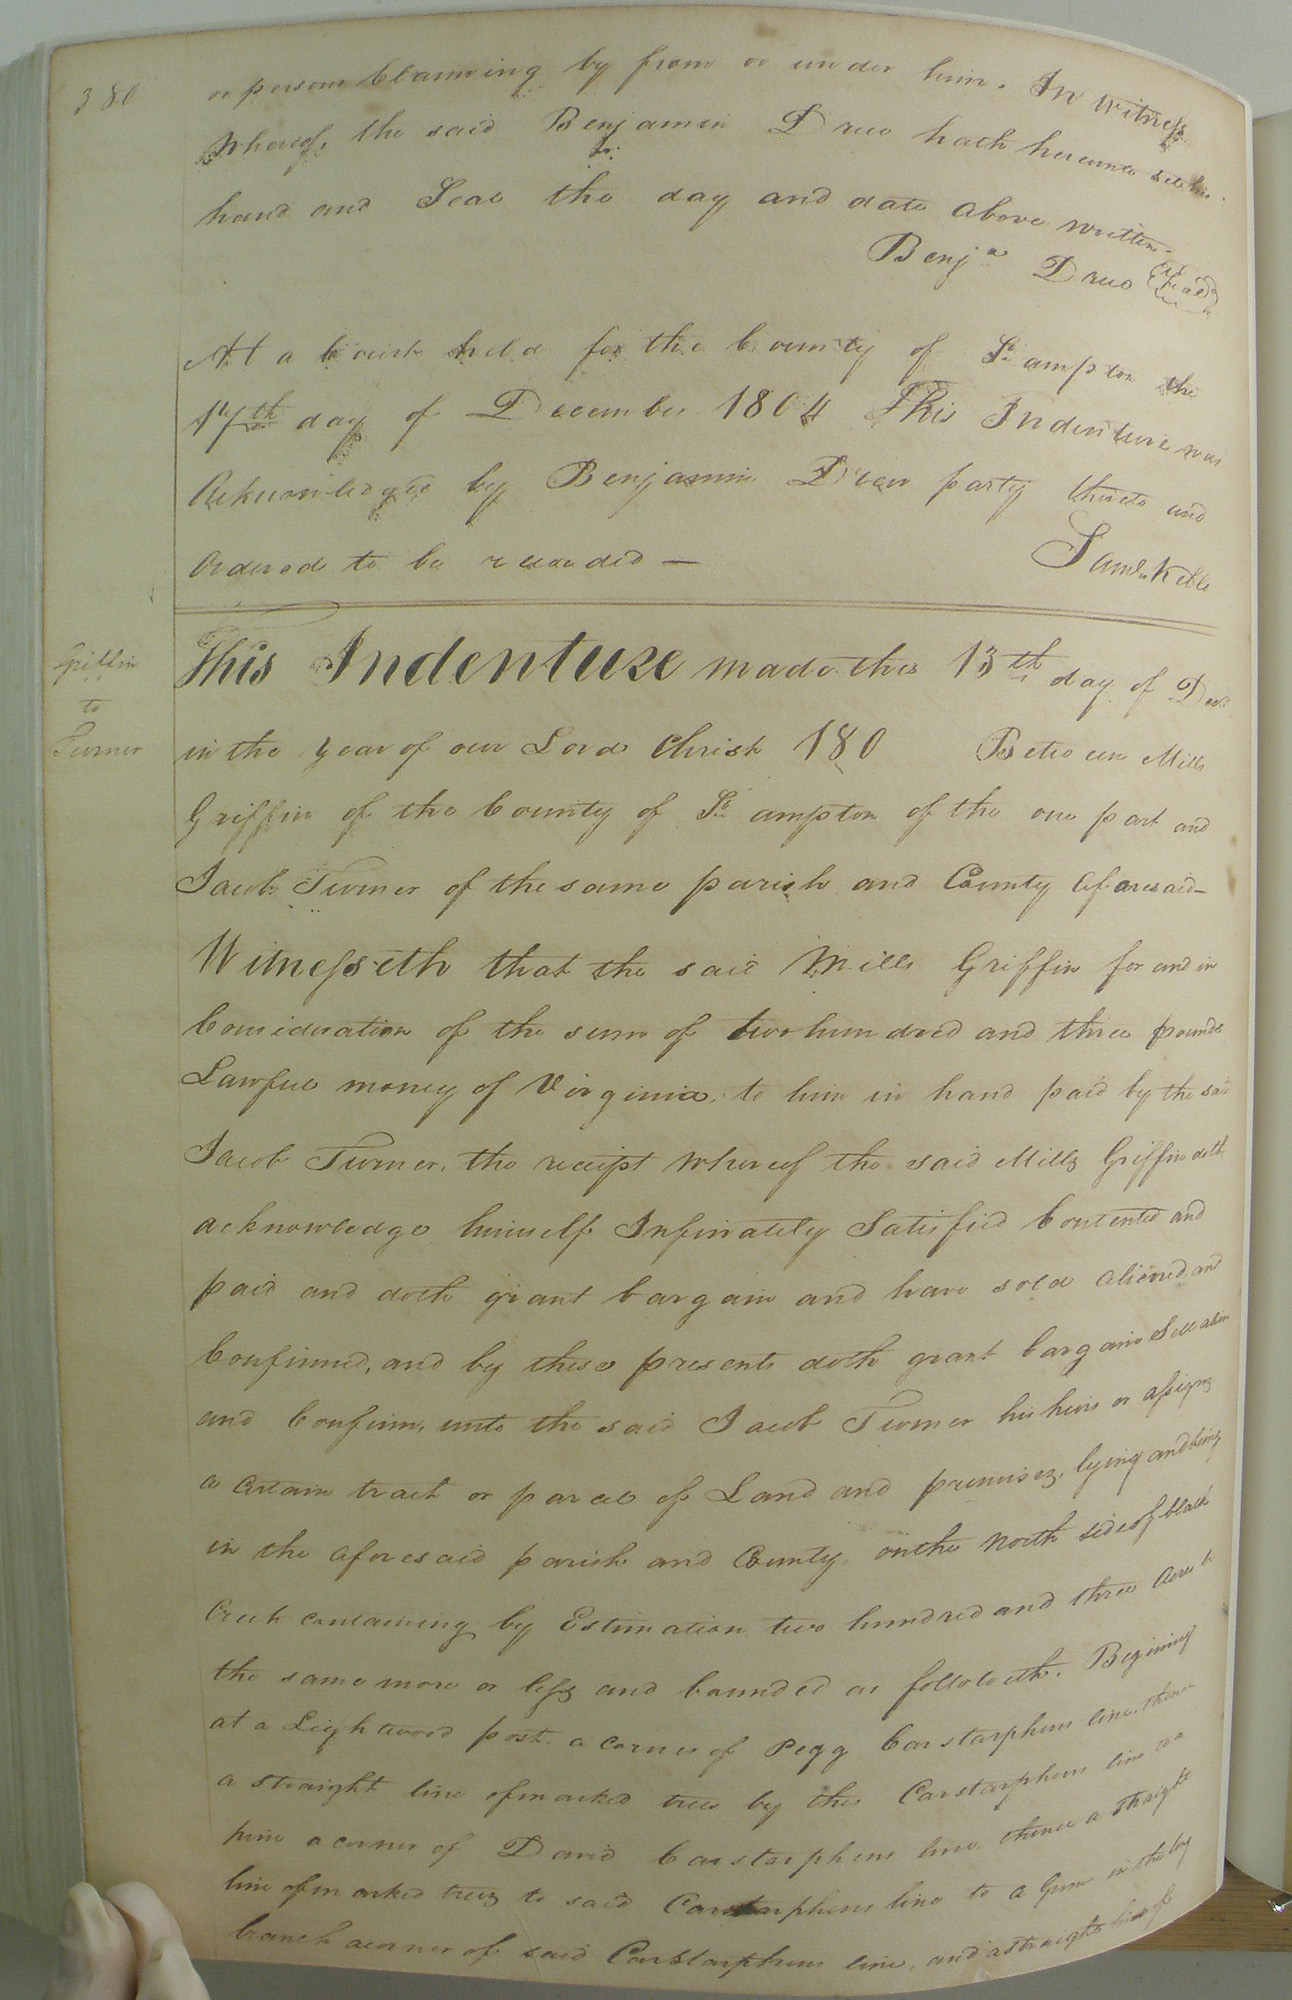 380
or persons Claiming by from or under him. In Witness
Whereof, the said Benjamin Drew hath hereunto set his
hand and Seal the day and date above written
Benja Drew Seal
At a Court held for the County of So ampton the
17th day of December 1804 This Indenture was
Acknowledged by Benjamin Drew party thereto and
Ordered to be recorded —
Saml Kello
Griffin
to
Turner
This Indenture made this 13th day of Decr
in the year of our Lord Christ 180 Between Mills
Griffin of the County of So ampton of the one part and
Jacob Turner of the same parish and County aforesaid—
Witnesseth that the said Mills Griffin for and in
Consideration of the sum of two hundred and three pounds
Lawful money of Virginia, to him in hand paid by the said
Jacob Turner, the receipt whereof the said Mills Griffin doth
acknowledge himself Infinately Satisfied Contented and
paid and doth grant bargain and have sold aliened, and
Confirmed, and by these presents doth grant bargain Sell alien
and Confirm, unto the said Jacob Turner his heirs or assigns
a certain tract or parcel of Land and premises, lying and being
in the aforesaid parish and County, on the North side of black
Creek containing by Estimation two hundred and three Acres be
the same more or less and bounded as followeth. Begining
at a Lightwood post a corner of Pegg Carstarphens line, thence
a straight line of marked trees by the Carstarphens line to a
pine a corner of David Carstarphens line thence a straight
line of marked trees to said Carstarphens line to a Gum in the
branch a corner of said Carstarphens line, and a straight line of